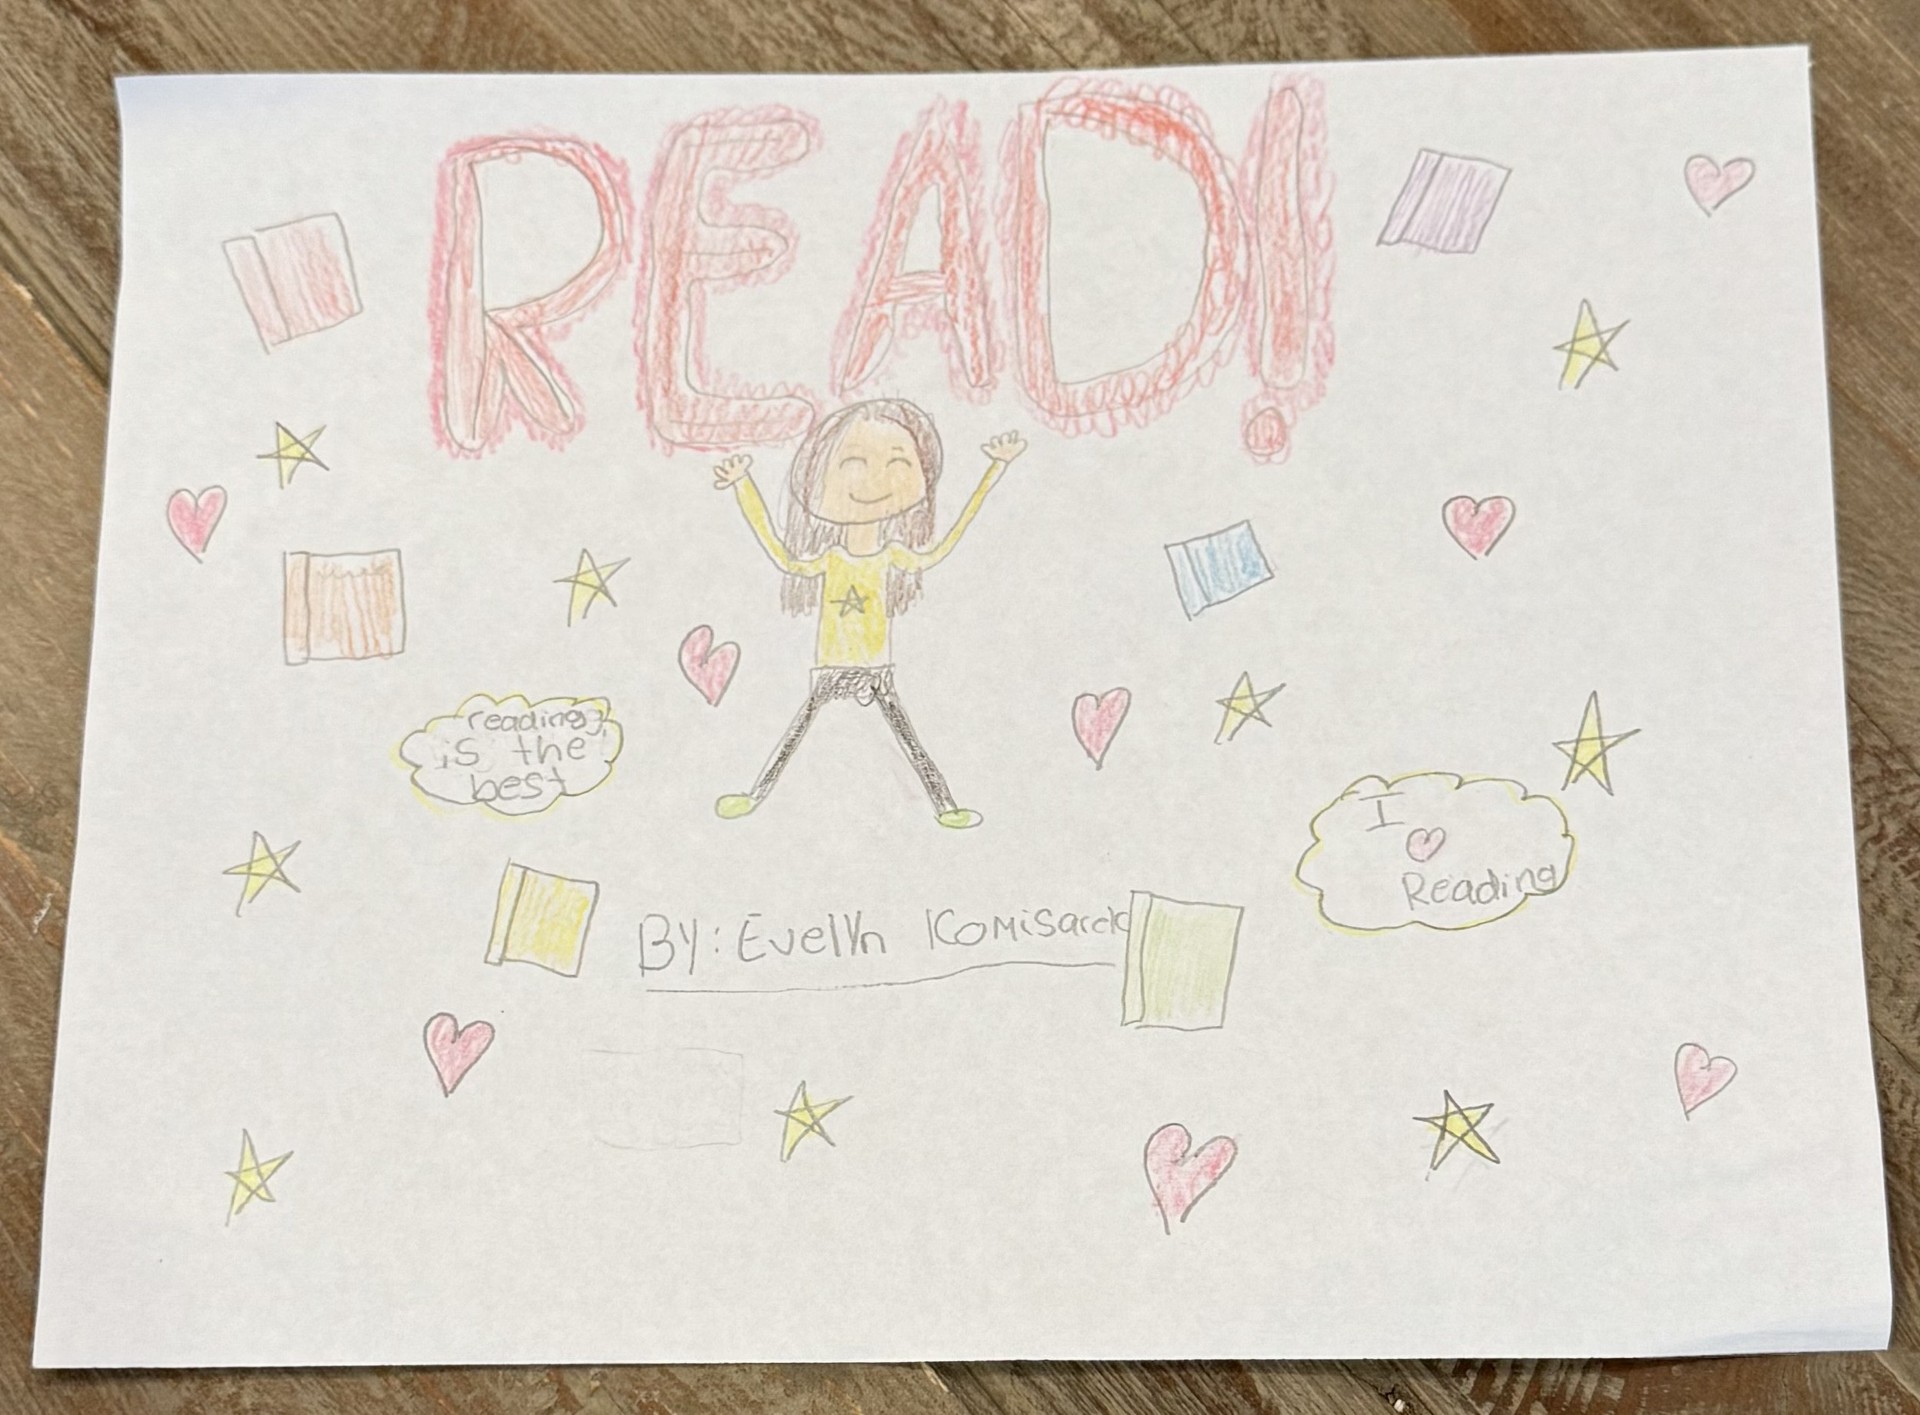 READ!
reading
is the
best
I ♥
Reading
BY: Evelyn Komisarek